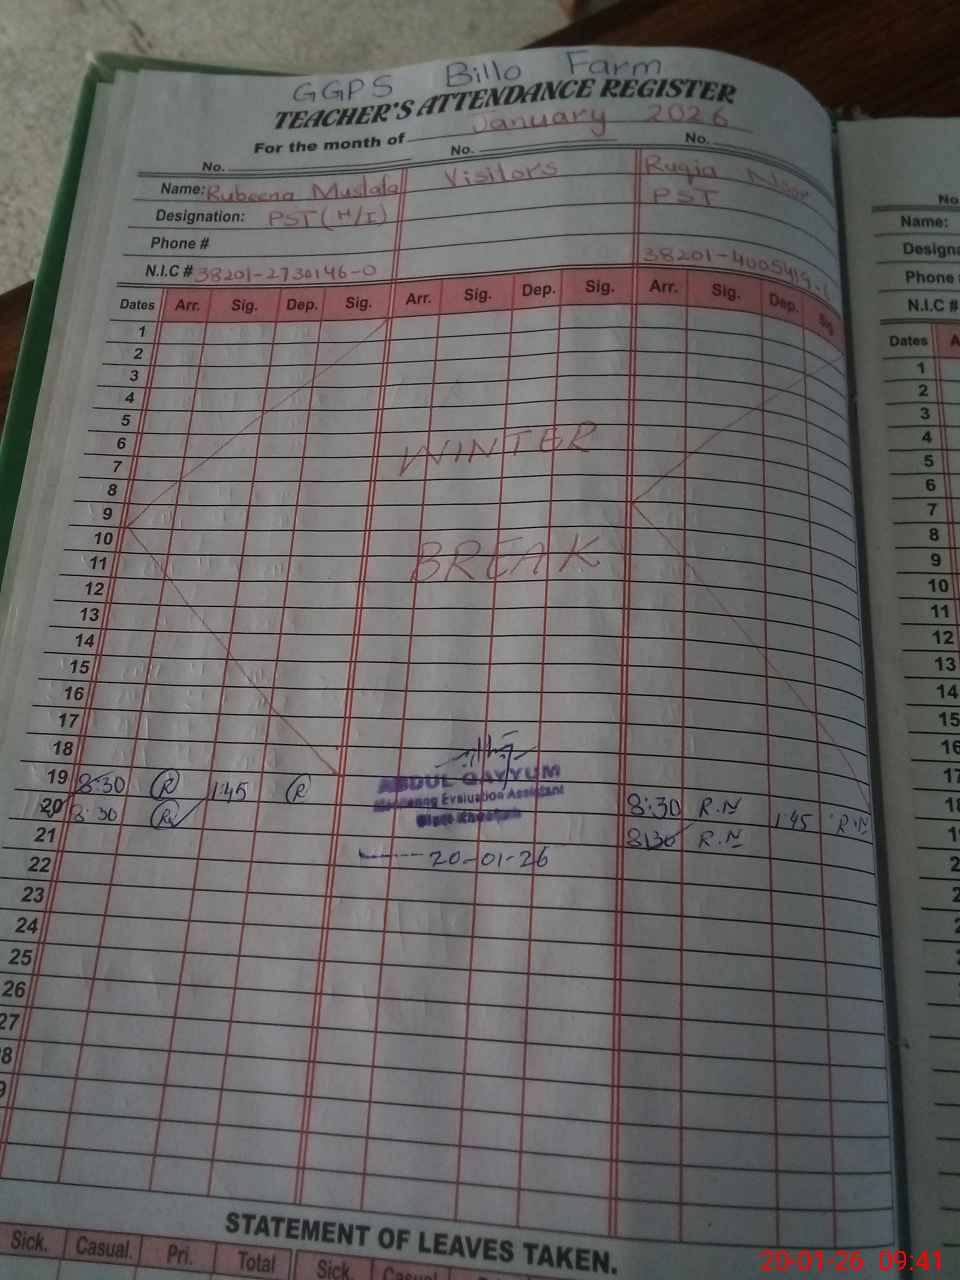 GGPS Billo Farm
TEACHER'S ATTENDANCE REGISTER
For the month of January 2026
No. No. No.
Name: Rubeena Mustafa Visitors Ruqia Noor
Designation: PST (H/I) PST
Phone #
N.I.C # 38201-2730146-0 38201-4005419-
Dates Arr. Sig. Dep. Sig. Arr. Sig. Dep. Sig. Arr. Sig. Dep. Sig.
1
2
3
4
5
6
WINTER
7
8
9
10
11
BREAK
12
13
14
15
16
17
18
19 8:30 R 1:45 R 8:30 R.N 1:45 R.N
20 8:30 R 8:30 R.N
ABDUL QAYYUM
Monitoring Evaluation Assistant
21
20-01-26
22
23
24
25
26
27
8
9
STATEMENT OF LEAVES TAKEN.
Sick. Casual. Pri. Total Sick. Casual
No
Name:
Designa
Phone
N.I.C #
Dates A
1
2
3
4
5
6
7
8
9
10
11
12
13
14
15
16
17
18
19
2
2
2
20-01-26 09:41